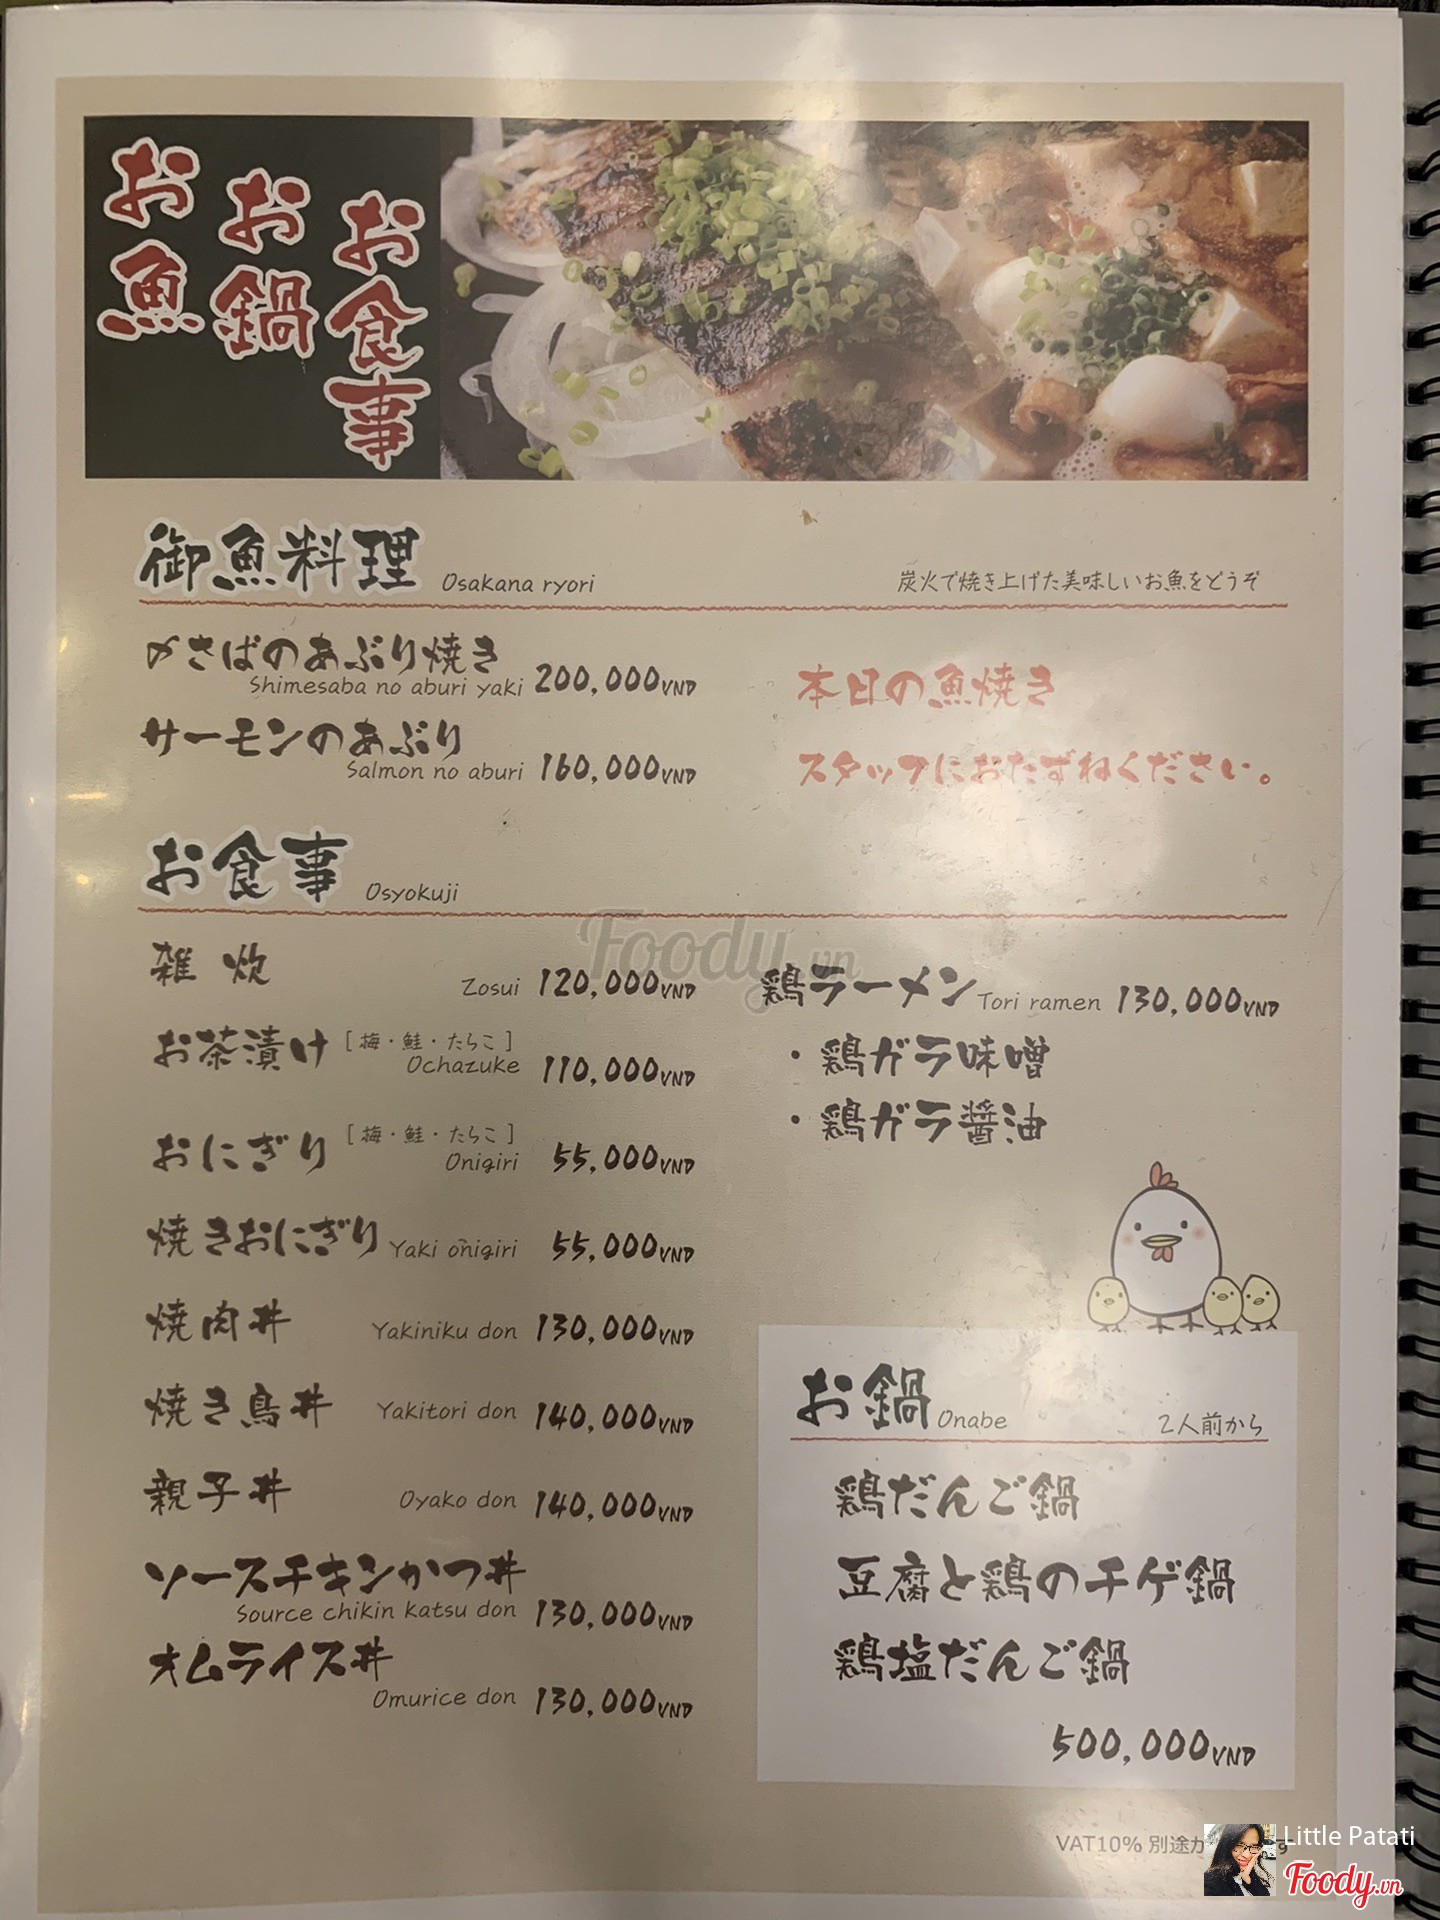 お魚
お鍋
お食事
御魚料理 Osakana ryori
炭火で焼き上げた美味しいお魚をどうぞ
〆さばのあぶり焼き
Shimesaba no aburi yaki 200,000VND
サーモンのあぶり
Salmon no aburi 160,000VND
本日の魚焼き
スタッフにおたずねください。
お食事 Osyokuji
雑炊 Zosui 120,000VND
お茶漬け [梅・鮭・たらこ]
Ochazuke 110,000VND
おにぎり [梅・鮭・たらこ]
Onigiri 55,000VND
焼きおにぎり Yaki onigiri 55,000VND
焼肉丼 Yakiniku don 130,000VND
焼き鳥丼 Yakitori don 140,000VND
親子丼 Oyako don 140,000VND
ソースチキンかつ丼
Source chikin katsu don 130,000VND
オムライス丼
Omurice don 130,000VND
鶏ラーメン Tori ramen 130,000VND
・鶏ガラ味噌
・鶏ガラ醤油
お鍋 Onabe 2人前から
鶏だんご鍋
豆腐と鶏のチゲ鍋
鶏塩だんご鍋
500,000VND
VAT10% 別途か
す
Foody.vn
Little Patati
Foody.vn